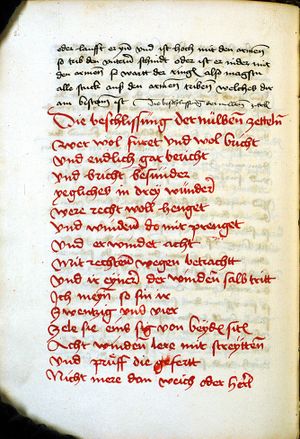 oder laufft er yn und ist hoch mit den armen
so trib den untrñ schnidt oder ist er nider mit
den armen so wartt der ringñ also magstu
alle stuck auß den armen triben welches dir
am besten ist Die beschlissung der zetl
Die beschlissung der zettelñ
Wer wol furet und wol bricht
Und endlich gar bericht
Und bricht besunder
Yegliches in drey wunder
Were recht woll henget
Und winden do mit prenget
Und er windet acht
Mit rechten wegen betrachtt
Und ir eyner der winden salb tritt
Ich meyn so sin ir
Swentzig und vier
Zele sie eins von beyde sit
Acht winden lere mit streytten
Und prüff die gefertt
Nicht mere dan weich oder hert